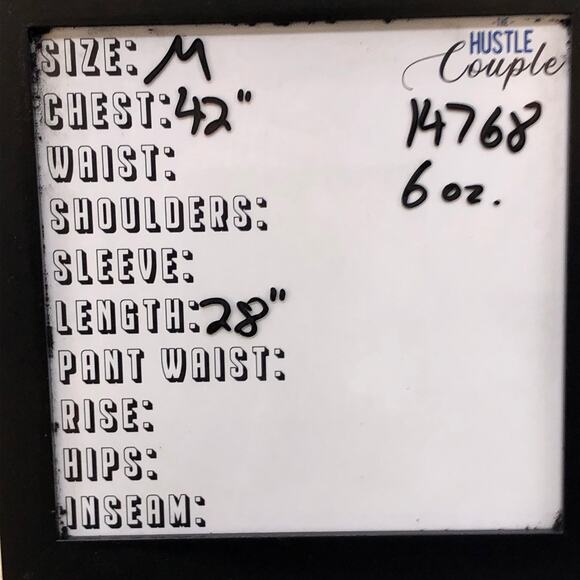 SIZE: M
CHEST: 42"
WAIST:
SHOULDERS:
SLEEVE:
LENGTH: 28"
PANT WAIST:
RISE:
HIPS:
INSEAM:
-THE-
HUSTLE
Couple
14768
6 oz.